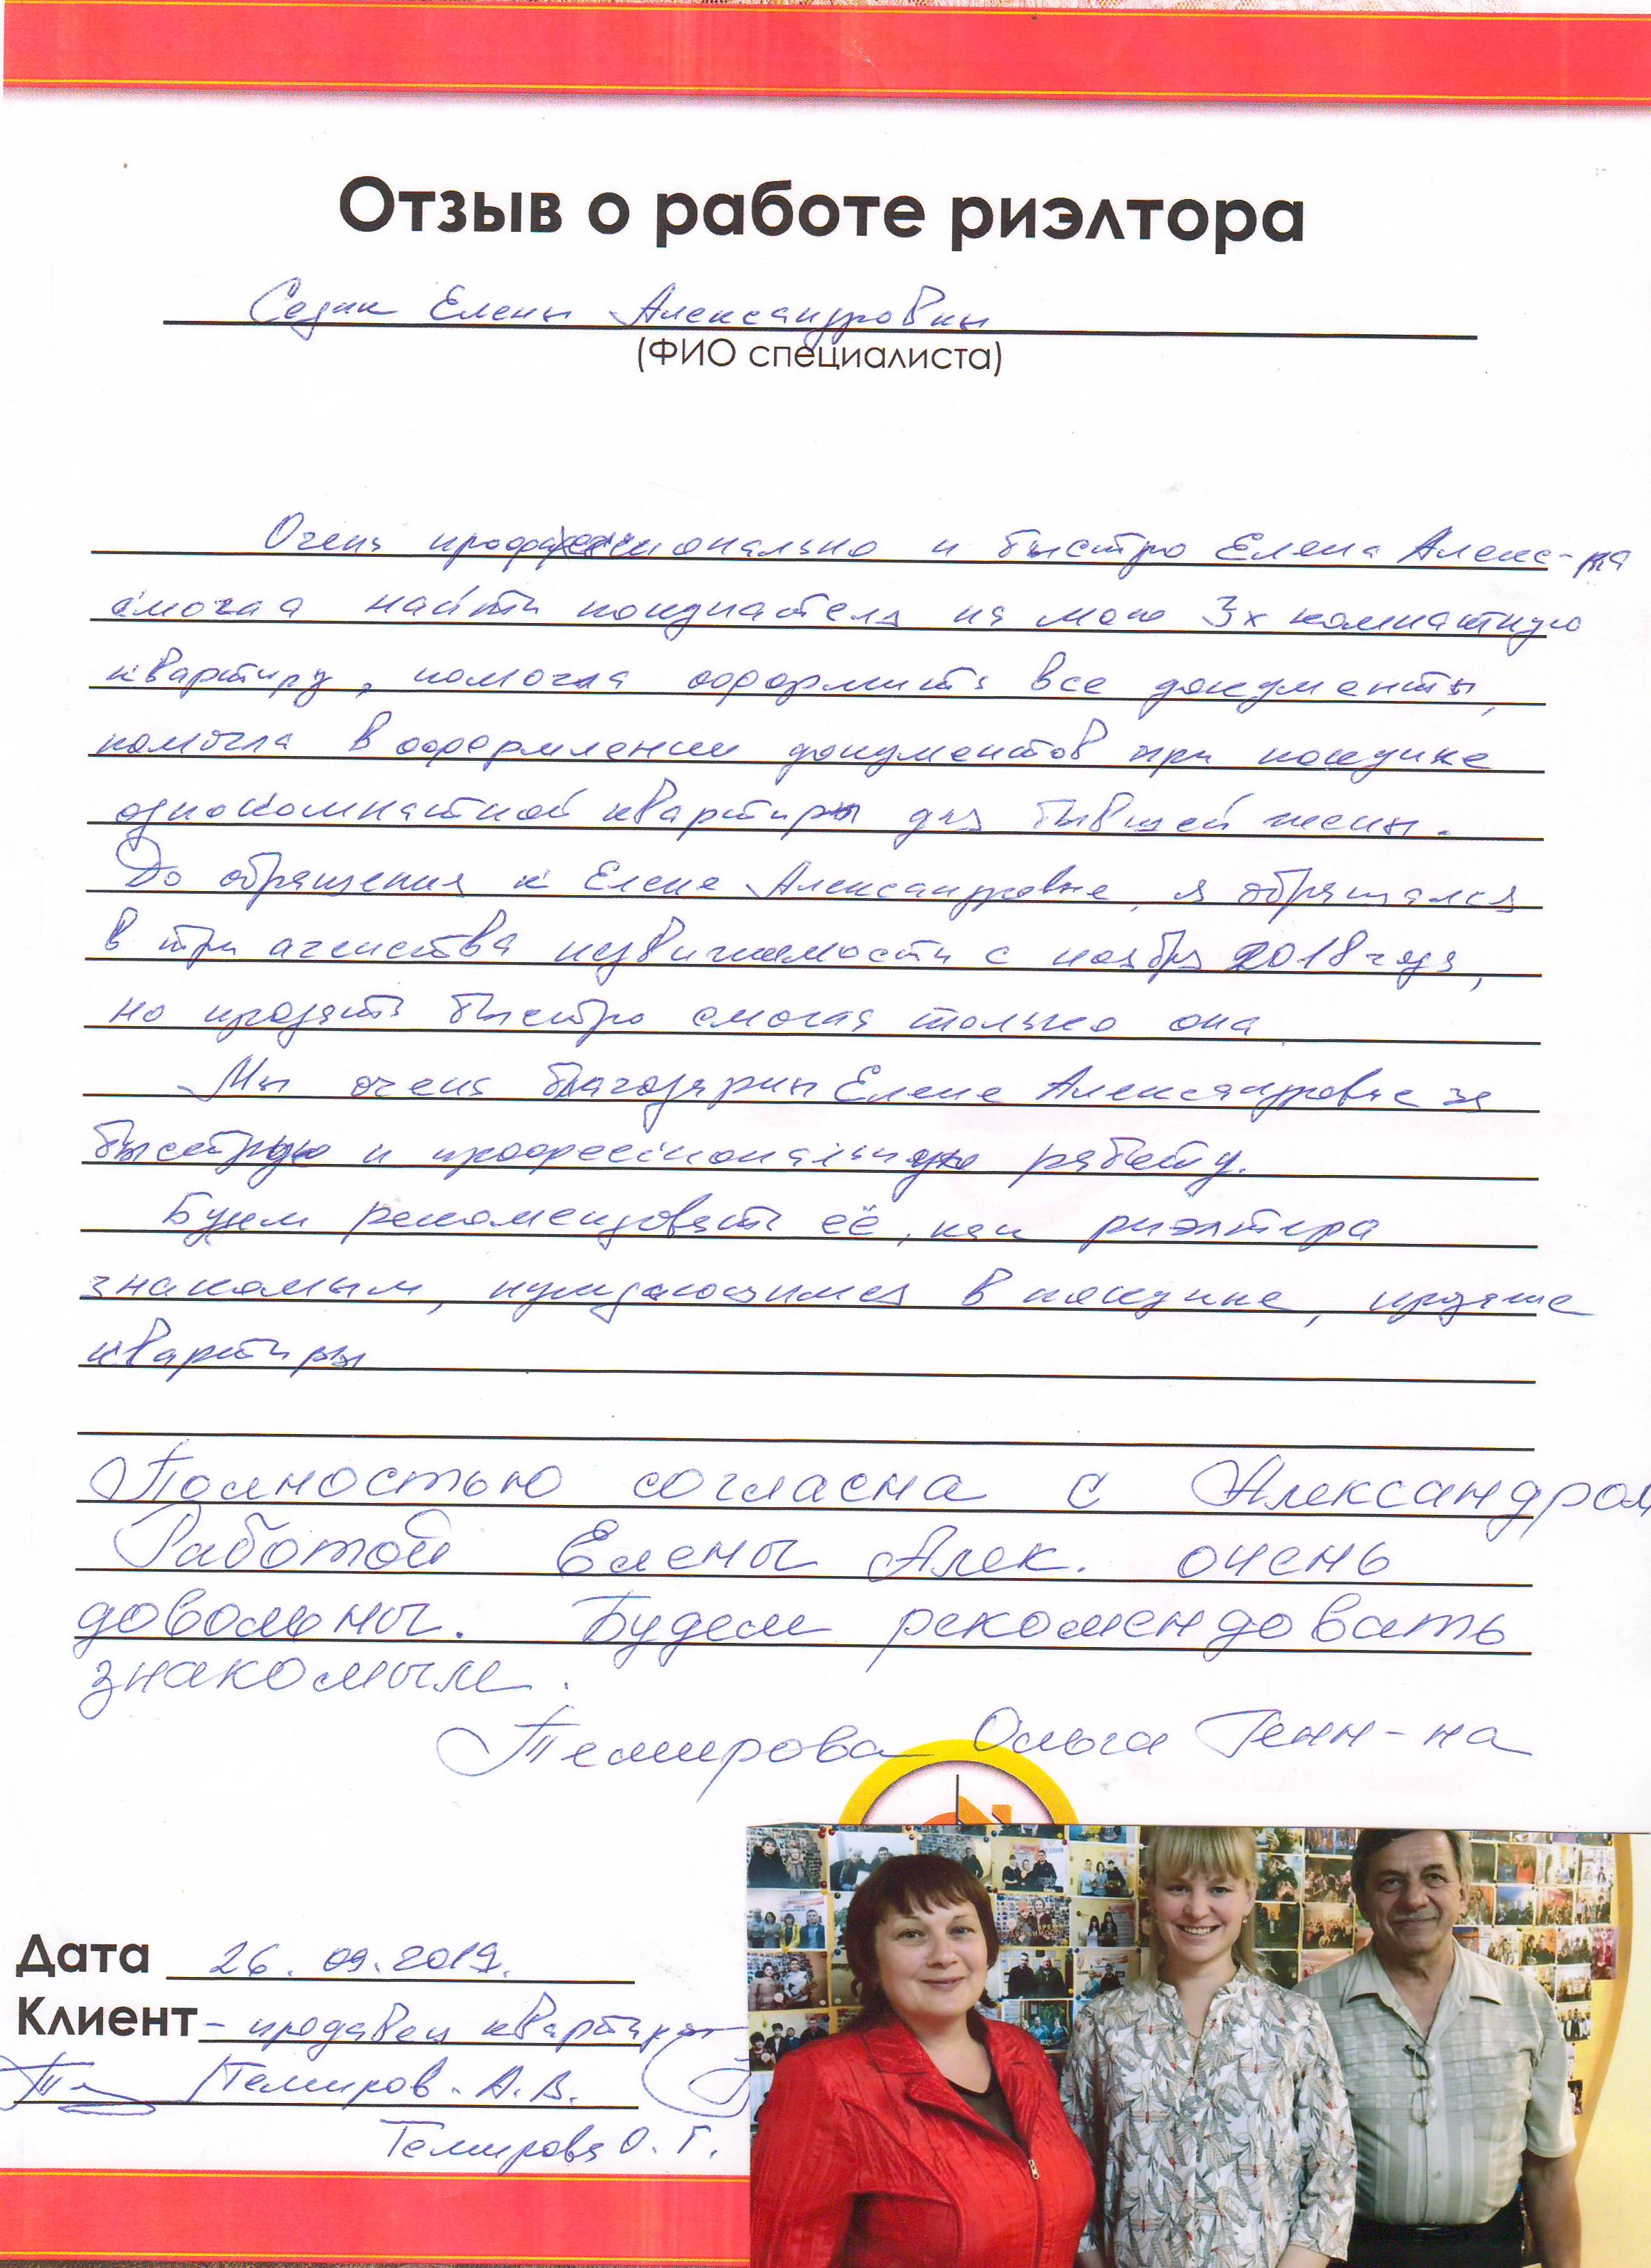 Отзыв о работе риэлтора
Седик Елены Александровны
(ФИО специалиста)
Очень профессионально и быстро Елена Алекс-на
смогла найти покупателя на мою 3х комнатную
квартиру, помогла оформить все документы,
помогла в оформлении документов при покупке
однокомнатной квартиры для бывшей жены.
До обращения к Елене Александровне, я обращался
в три агенства недвижимости с ноября 2018 года,
но продать быстро смогла только она
Мы очень благодарны Елене Александровне за
быструю и профессиональную работу.
Будем рекомендовать её, как риэлтора
знакомым, нуждающимся в покупке, продаже
квартиры
Полностью согласна с Александром
Работой Елены Алек. очень
довольны. Будем рекомендовать
знакомым.
Темирова Ольга Генн-на
Дата 26.09.2019.
Клиент - продавец квартиры
/Темиров. А.В.
Темирова О.Г.